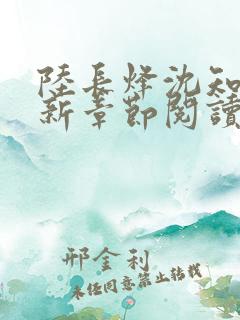 陸長烽沈知
新章節閱讀
邢金利
未經同意禁止轉載